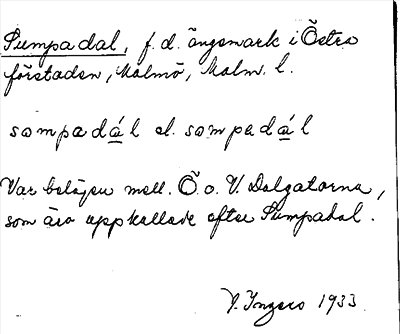 Pumpadal, f.d. ängsmark i Östra
förstaden, Malmö, Malm. l.
sompadál el. sompadál
Var belägen mell. Ö. o. V. Dalgatorna,
som äro uppkallade efter Pumpadal.
Ingers 1933